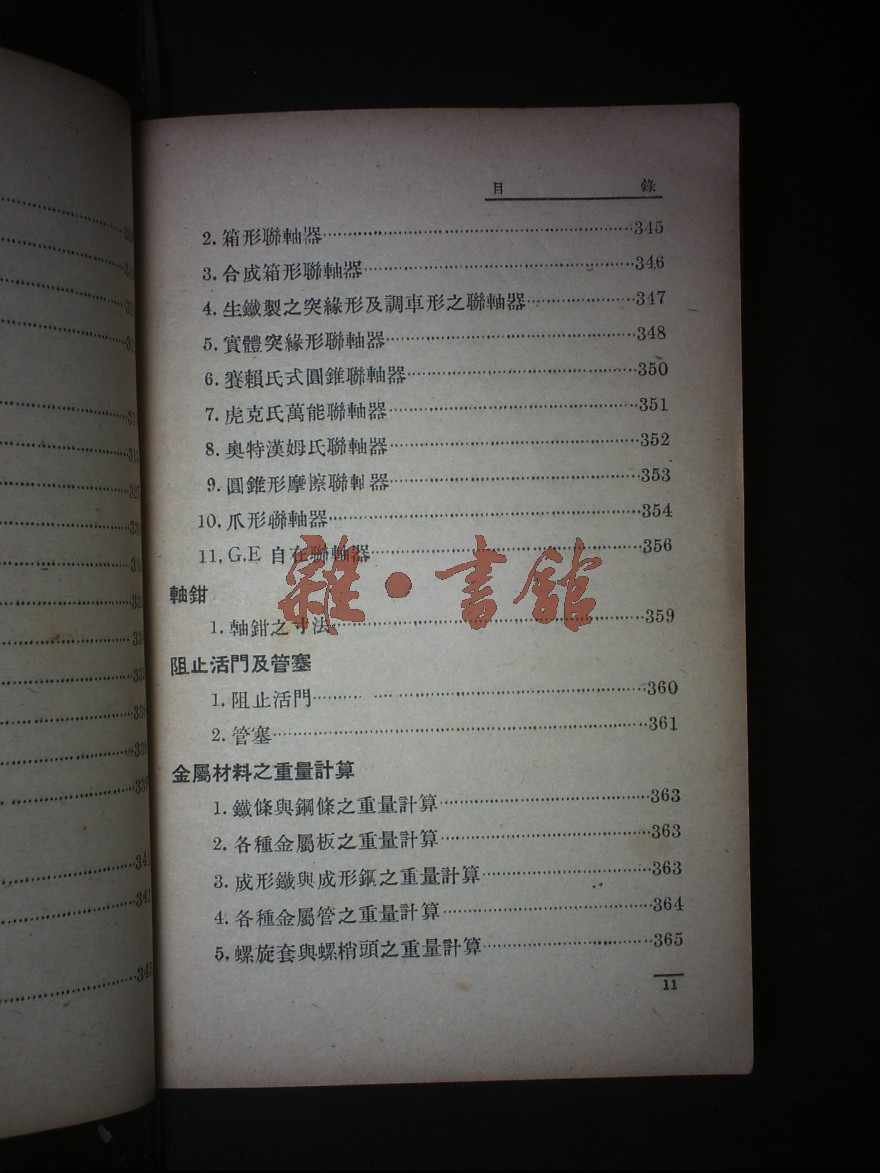 目 錄
2. 箱形聯軸器 345
3. 合成箱形聯軸器 346
4. 生鐵製之突緣形及調車形之聯軸器 347
5. 實體突緣形聯軸器 348
6. 賽賴氏式圓錐聯軸器 350
7. 虎克氏萬能聯軸器 351
8. 奧特漢姆氏聯軸器 352
9. 圓錐形摩擦聯軸器 353
10. 爪形聯軸器 354
11. G.E 自在聯軸器 356
雜·書館
軸鉗
1. 軸鉗之寸法 359
阻止活門及管塞
1. 阻止活門 360
2. 管塞 361
金屬材料之重量計算
1. 鐵條與鋼條之重量計算 363
2. 各種金屬板之重量計算 363
3. 成形鐵與成形鋼之重量計算 363
4. 各種金屬管之重量計算 364
5. 螺旋套與螺梢頭之重量計算 365
11